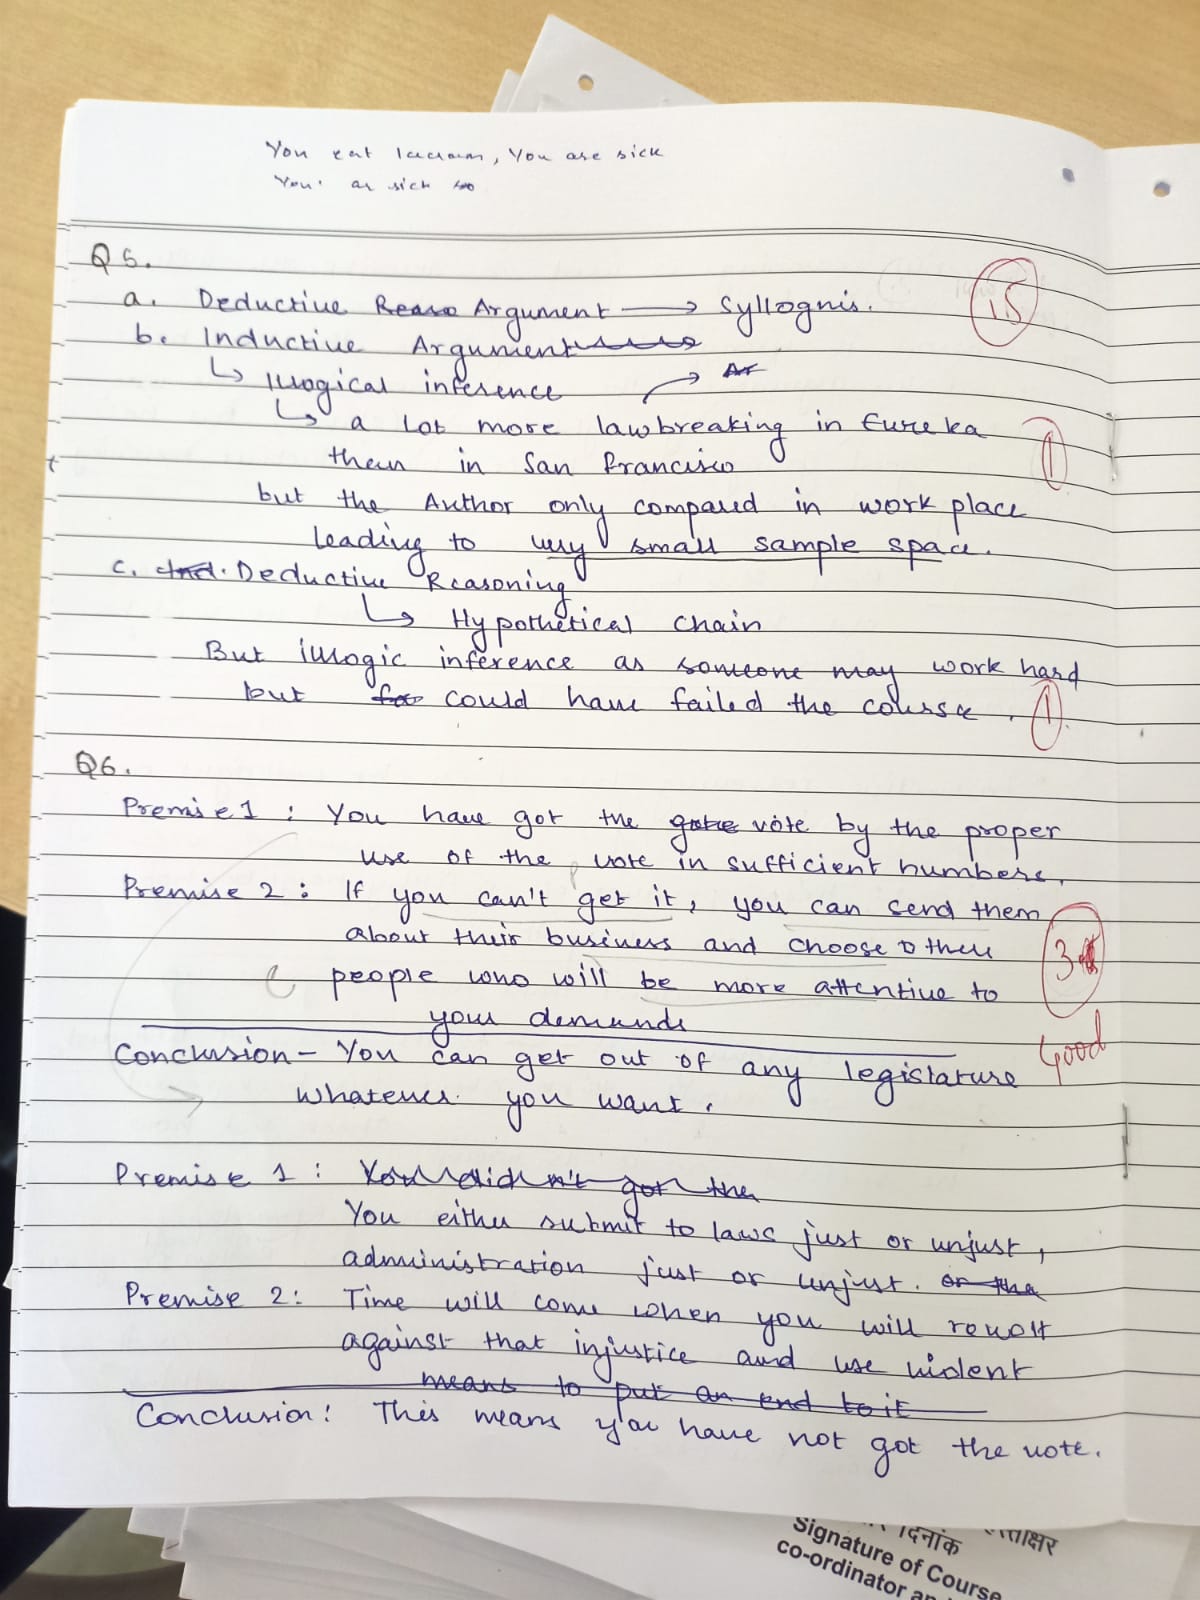 You eat icecream, You are sick
You. ar sick so
Q5.
a. Deductive Reaso Argument → Syllognis.
1.5
b. Inductive Argument
↳ Illogical inference → Ar
↳ a lot more lawbreaking in Eureka
then in San Francisco
1
but the Author only compared in work place
leading to very small sample space.
c. Ind. Deductive Reasoning
↳ Hypothetical Chain
But illogic inference as someone may work hard
but for could have failed the course.
1
Q6.
Premise 1 : You have got the vote by the proper
use of the vote in sufficient numbers.
Premise 2 : If you can't get it, you can send them
about their business and choose other
3
people who will be more attentive to
your demands
Conclusion - You can get out of any legislature
Good
whatever you want.
Premise 1 : You didn't got the
You either submit to laws just or unjust,
administration just or unjust. or the
Premise 2: Time will come when you will revolt
against that injustice and use violent
means to put an end to it
Conclusion: This means you have not got the vote.
दिनांक
Signature of Course
co-ordinator